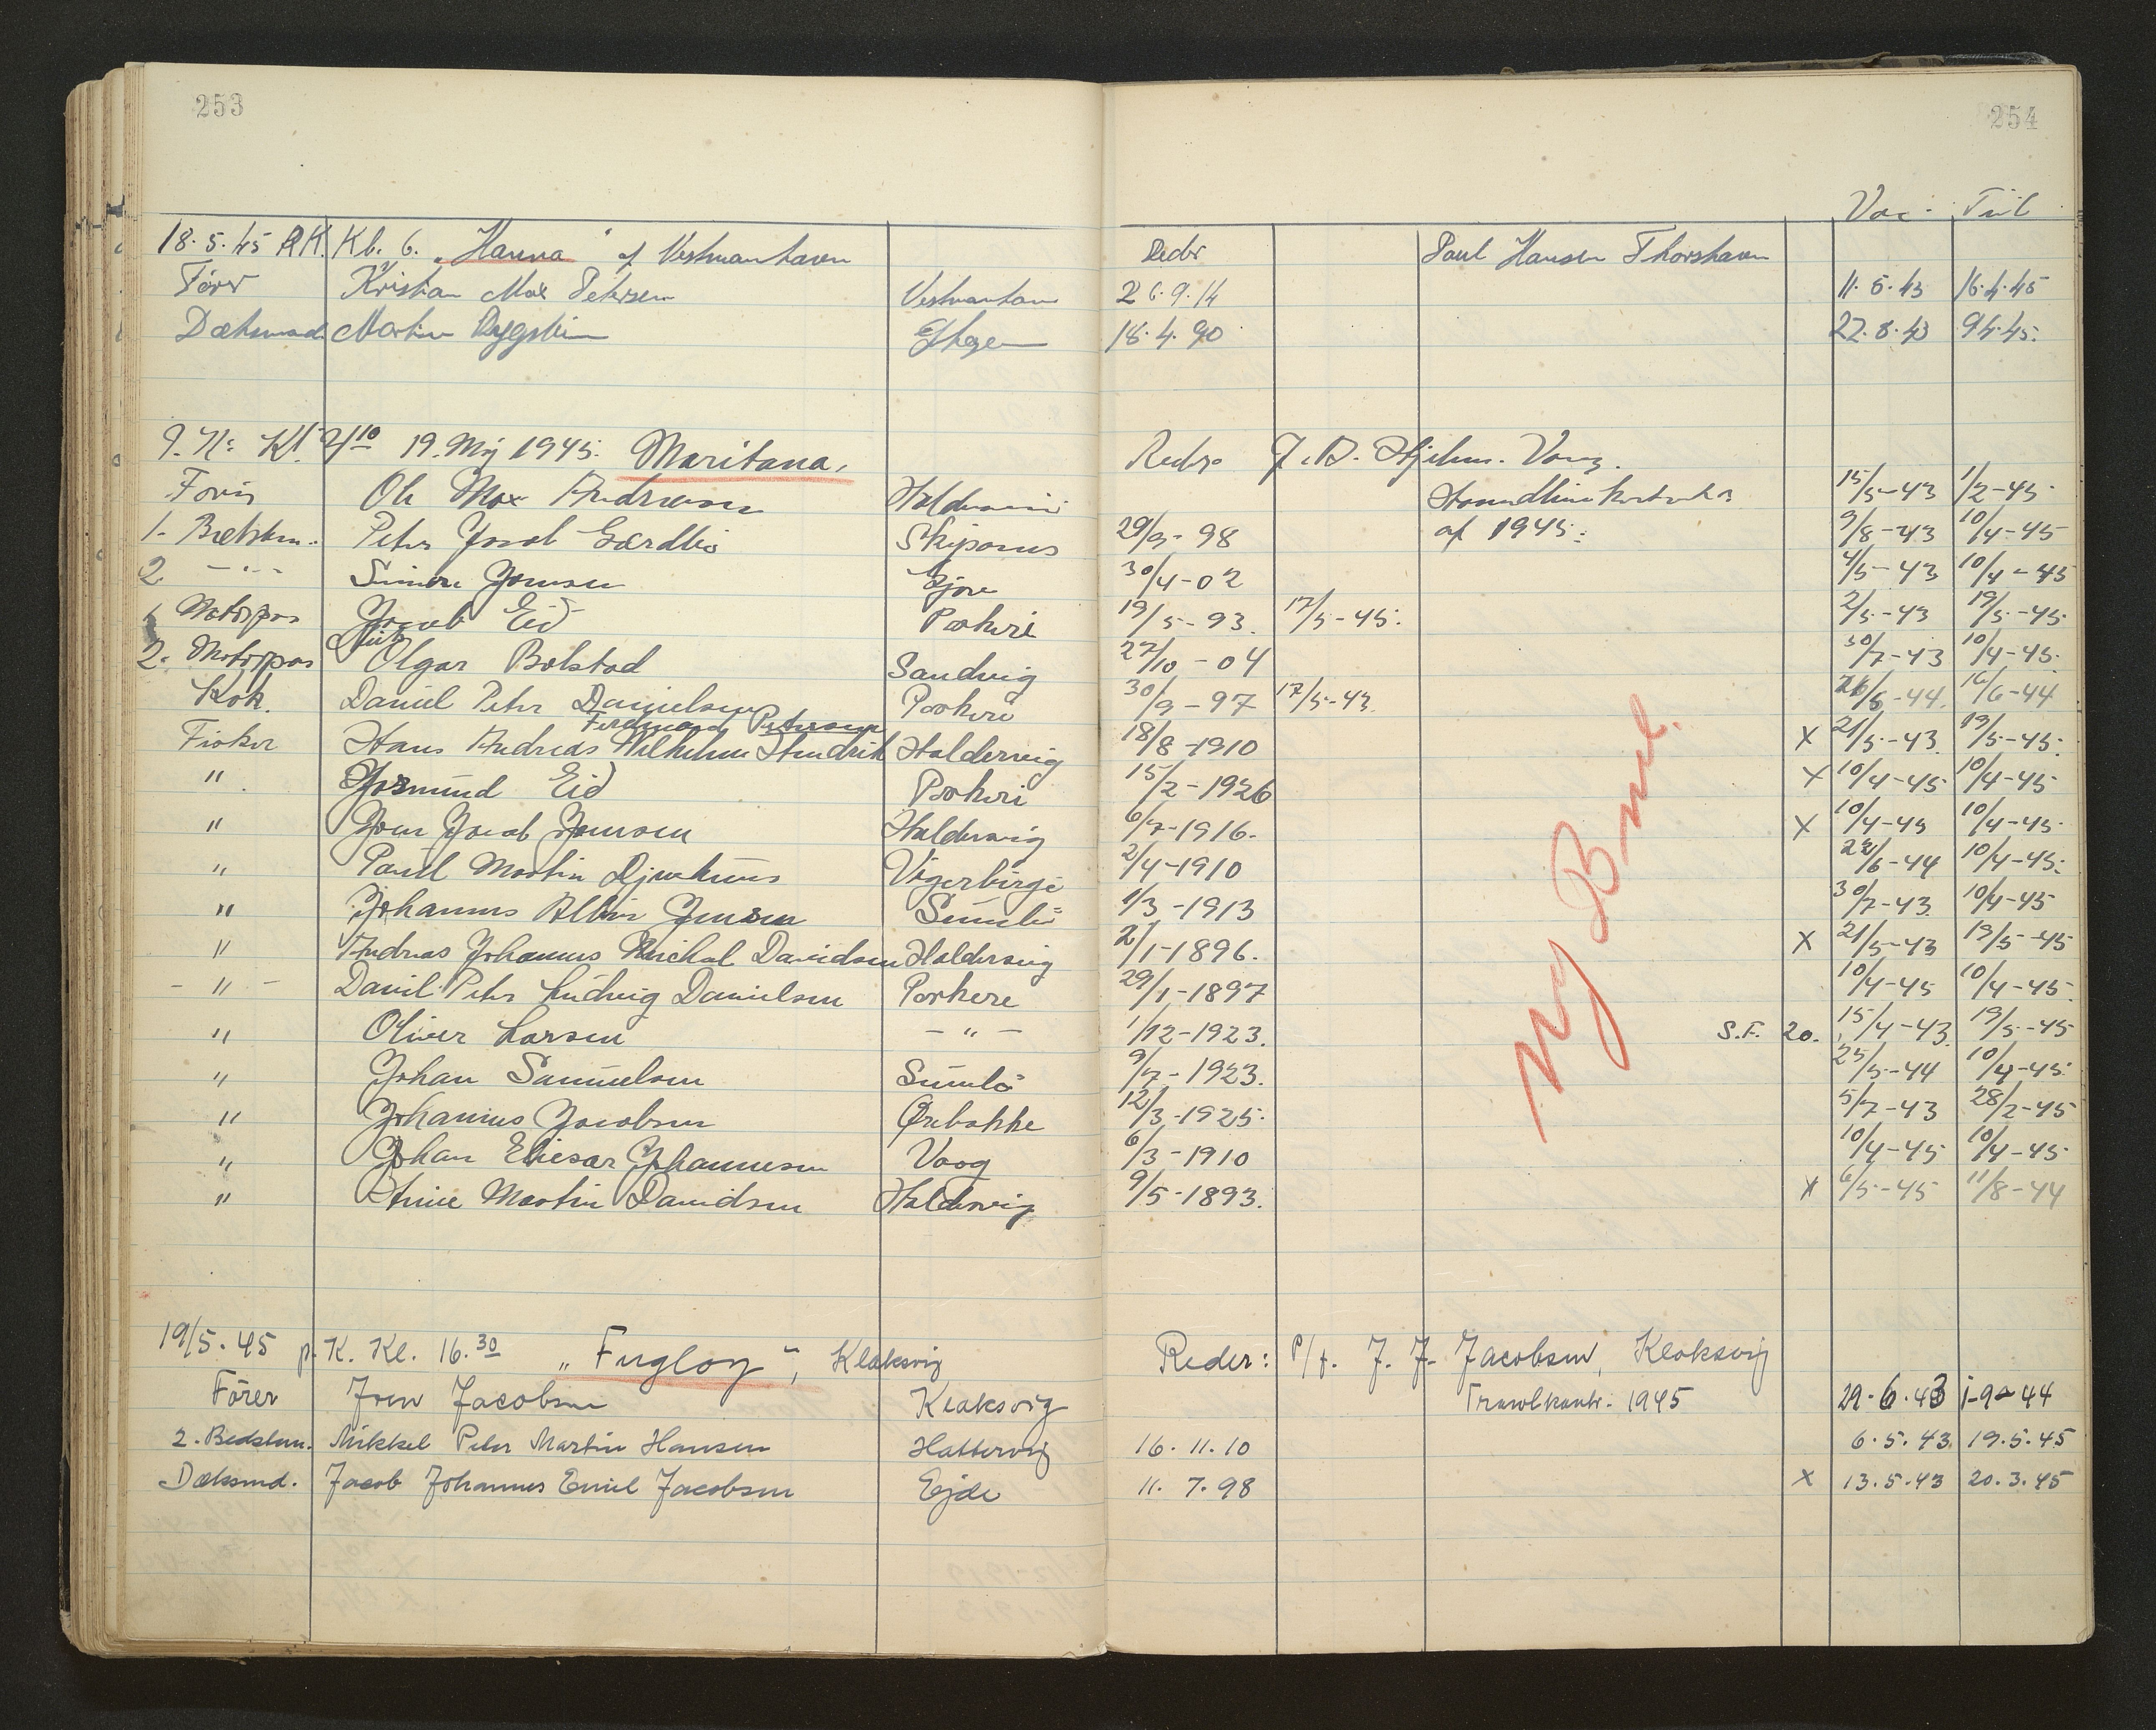 253
254
Vac. Till
18.5.45 P.K. Kl. 6. „Hanna“ af Vestmanhavn Reder Paul Hansen Thorshavn
Fører Kristian Max Petersen Vestmanhavn 26.9.14 11.5.43 16.4.45
Dæksmad. Martin Rygstein 18.4.90 27.8.43 9.4.45.
19. Maj 1945. Maritana, Reder
Ole Max Andreasen Haldersvig 15/5-43 1/2-45.
af 1945.
1. Bedstm. Peter Jacob Gærdbo Skipanæs 29/9-98 9/8-43 10/4-45
2. -"- Simon Joensen 30/4-02 4/5-43 10/4-45
Motorpas Jacob Eid Porkeri 19/5-93. 17/5-45. 2/5-43 19/5-45.
2. Motorpas Olgar Bolstad Sandvig 27/10-04 30/7-43 10/4-45.
Kok. Daniel Peter Danielsen Porkeri 30/9-97 17/5-43. /6-44. 16/6-44
Ferdinand Petersen
Fisker Hans Andreas Wilhelm Hendrik Haldersvig 18/8-1910 X 21/5-43. 19/5-45.
" Josmund Eid Porkeri 15/2-1926 X 10/4-45 10/4-45
" Joen Jacob Joensen Haldersvig 6/7-1916. X 10/4-45 10/4-45.
" Paul Martin Djurhuus Vágerbirgi 2/4-1910 /6-44 10/4-45.
" Johannus Albin Jensen Sumbø 1/3-1913 30/7-43 10/4-45
" Andreas Johannus Michal Davidsen Haldersvig 2/1-1896. X 21/5-43 19/5-45
- " - Daniel Peter Ludvig Danielsen Porkere 29/1-1897 10/4-45 10/4-45.
" Oliver Larsen - " - 1/12-1923. S.F. 20. 15/4-43 19/5-45
" Johan Samuelsen Sumbö 9/7-1923. 25/5-44 10/4-45
" Johannus Jacobsen Ørebakke 12/3-1925. 5/7-43 28/2-45
" Johan Eliesar Johannesen Vaag 6/3-1910 10/4-45 10/4-45.
" Martin Davidsen Haldersvig 9/5-1893. X 6/5-45 11/8-44
Ny
19/5.45 p.K. Kl. 16.30 „Fugloy“, Klaksvig Reder: P/f. J. F. Jacobsen, Klaksvig
Fører Joen Jacobsen Klaksvig Trawlkontr. 1945 29.6.43 1-9-44
2. Bedstem. Mikkel Peter Martin Hansen Hattervig 16.11.10 6.5.43 19.5.45
Dæksmd. Jacob Johannes Emil Jacobsen Ejde 11.7.98 X 13.5.43 20.3.45